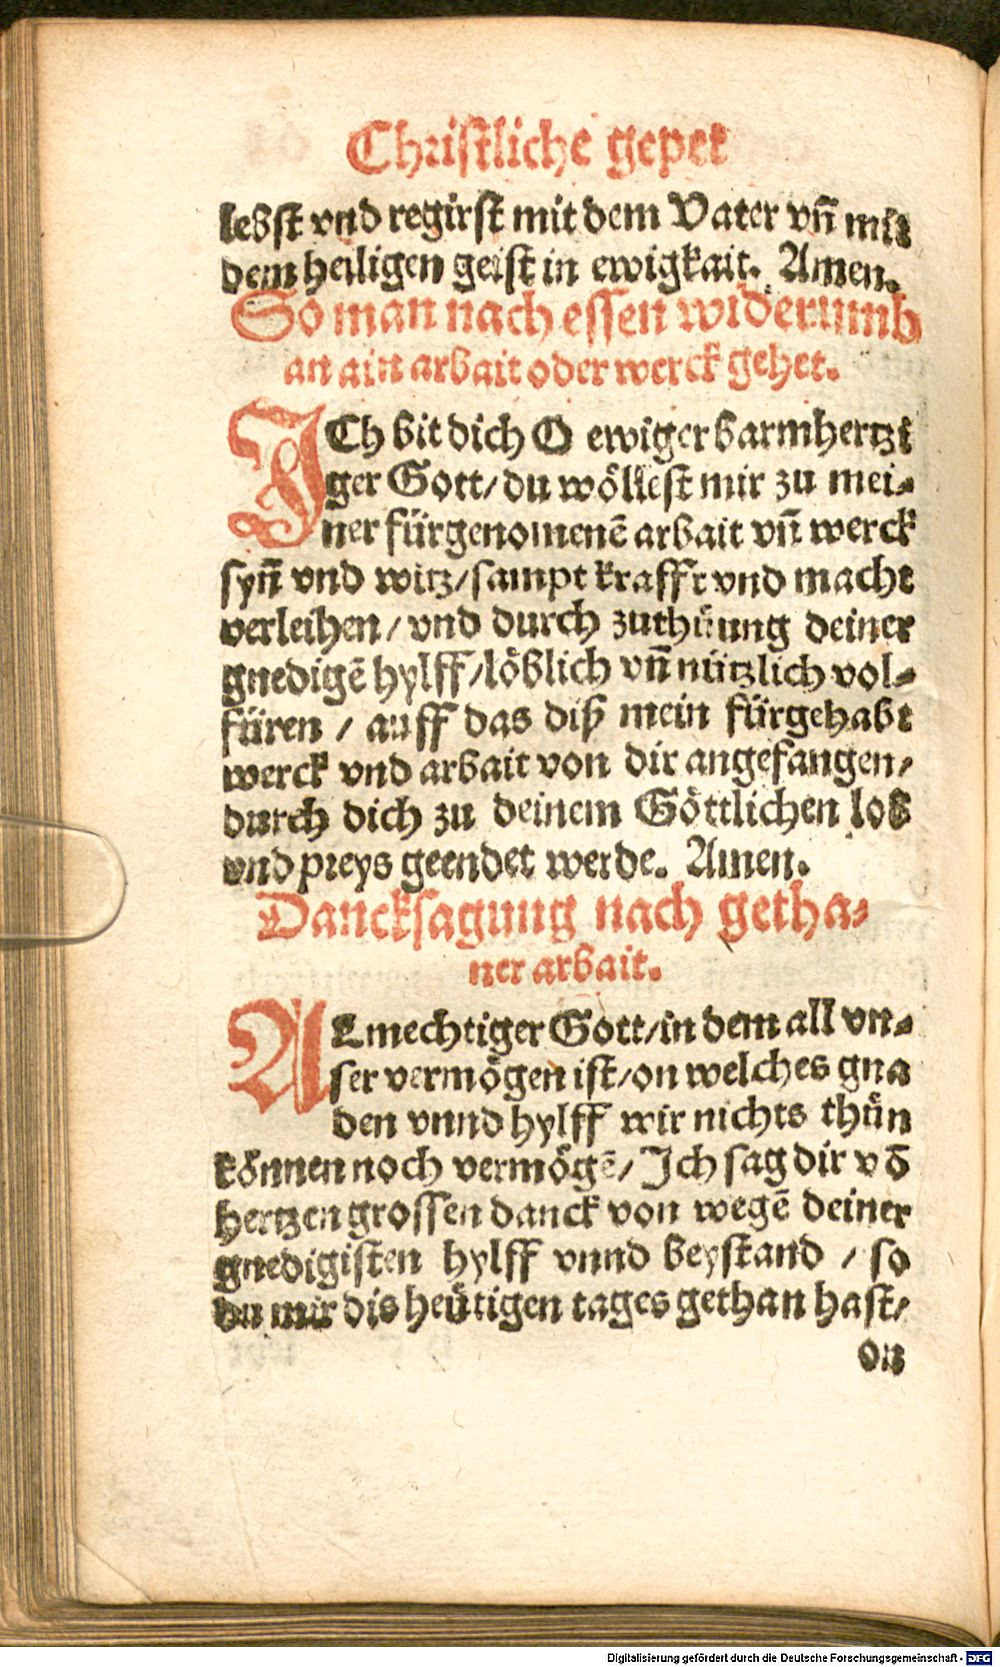 Christliche gepet
lebst vnd regirst mit dem Vater vn̄ mit
dem heiligen geist in ewigkait. Amen.
So man nach essen widerumb
an ain arbait oder werck gehet.
ICh bit dich O ewiger barmhertzi
ger Gott/ du wöllest mir zu mei⸗
ner fürgenomenē arbait vn̄ werck
syn̄ vnd witz/ sampt krafft vnd macht
verleihen/ vnd durch zuthůung deiner
gnedigē hylff/ löblich vn̄ nützlich vol⸗
füren / auff das diß mein fürgehabt
werck vnd arbait von dir angefangen/
durch dich zu deinem Göttlichen lob
vnd preys geendet werde. Amen.
Dancksagung nach getha⸗
ner arbait.
ALmechtiger Gott/ in dem all vn⸗
ser vermögen ist/ on welches gna
den vnnd hylff wir nichts thůn
können noch vermögē/ Ich sag dir vō
hertzen grossen danck von wegē deiner
gnedigisten hylff vnnd beystand / so
du mir dis heütigen tages gethan hast/
on
Digitalisierung gefördert durch die Deutsche Forschungsgemeinschaft - DFG